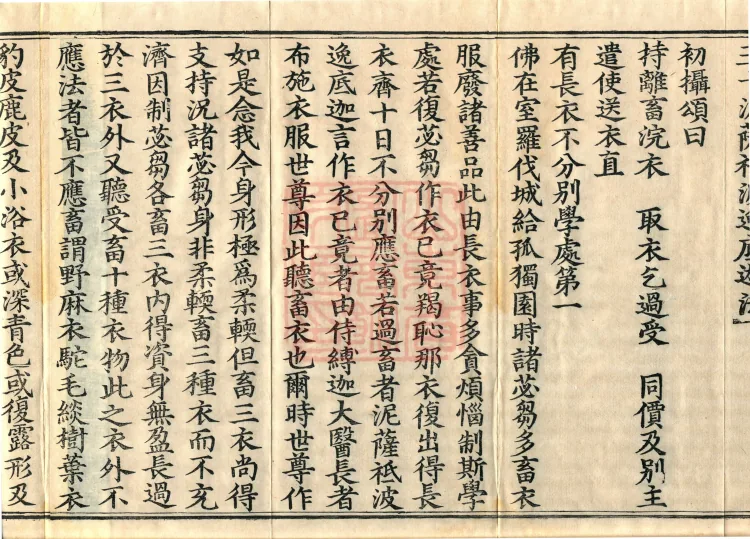 三十泥薩祇波逸底迦法
初攝頌曰
持離畜浣衣　取衣乞過受　同價及別主
遣使送衣直
有長衣不分別學處第一
佛在室羅伐城給孤獨園時諸苾芻多畜衣
服廢諸善品此由長衣事多貪煩惱制斯學
處若復苾芻作衣已竟羯恥那衣復出得長
衣齊十日不分別應畜若過畜者泥薩祇波
逸底迦言作衣已竟者由侍縛迦大醫長者
布施衣服世尊因此聽畜衣也爾時世尊作
如是念我今身形極爲柔輭但畜三衣尚得
支持況諸苾芻身非柔輭畜三種衣而不充
濟因制苾芻各畜三衣內得資身無盈長過
於三衣外又聽受畜十種衣物此之衣外不
應法者皆不應畜謂野麻衣駝毛緂樹葉衣
豹皮鹿皮及小浴衣或深青色或復露形及